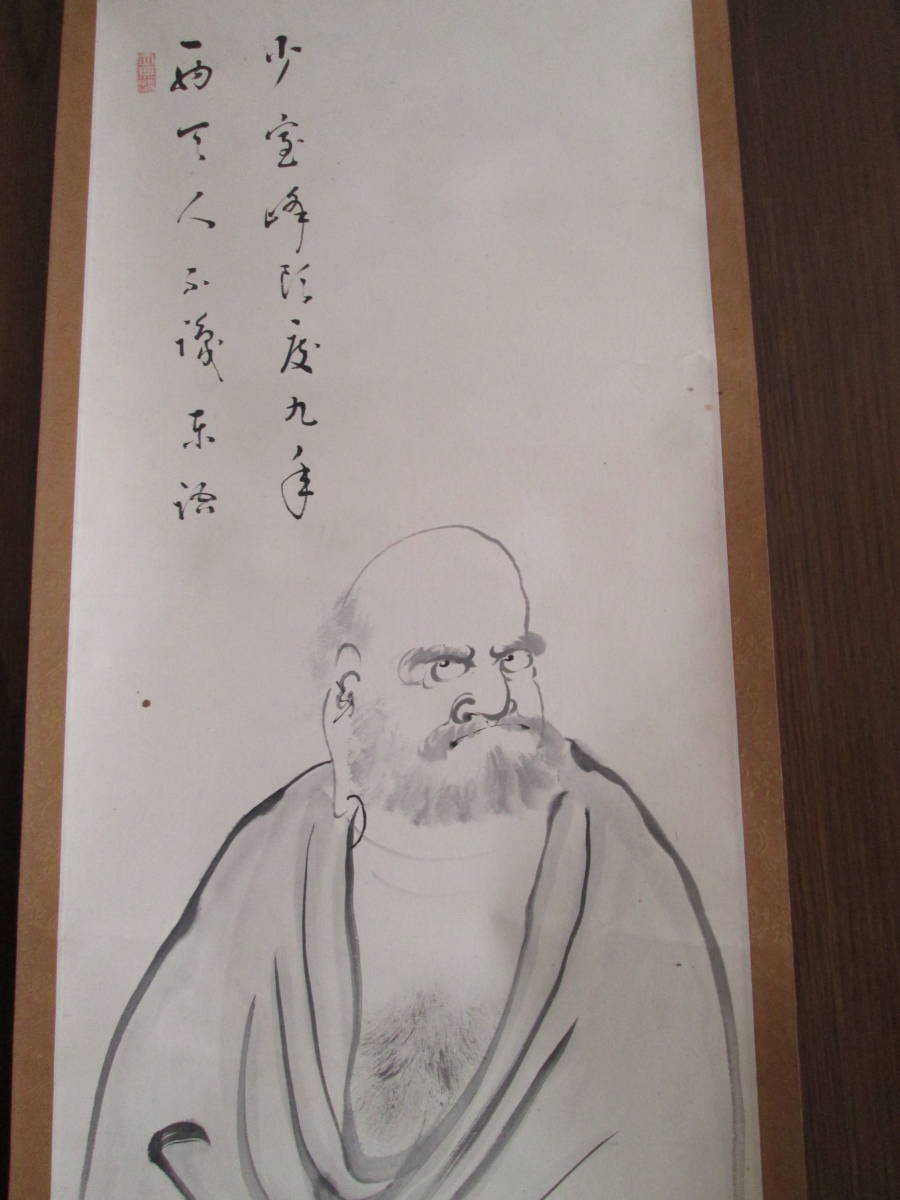 少室峰頭度九年
西天人不識東語